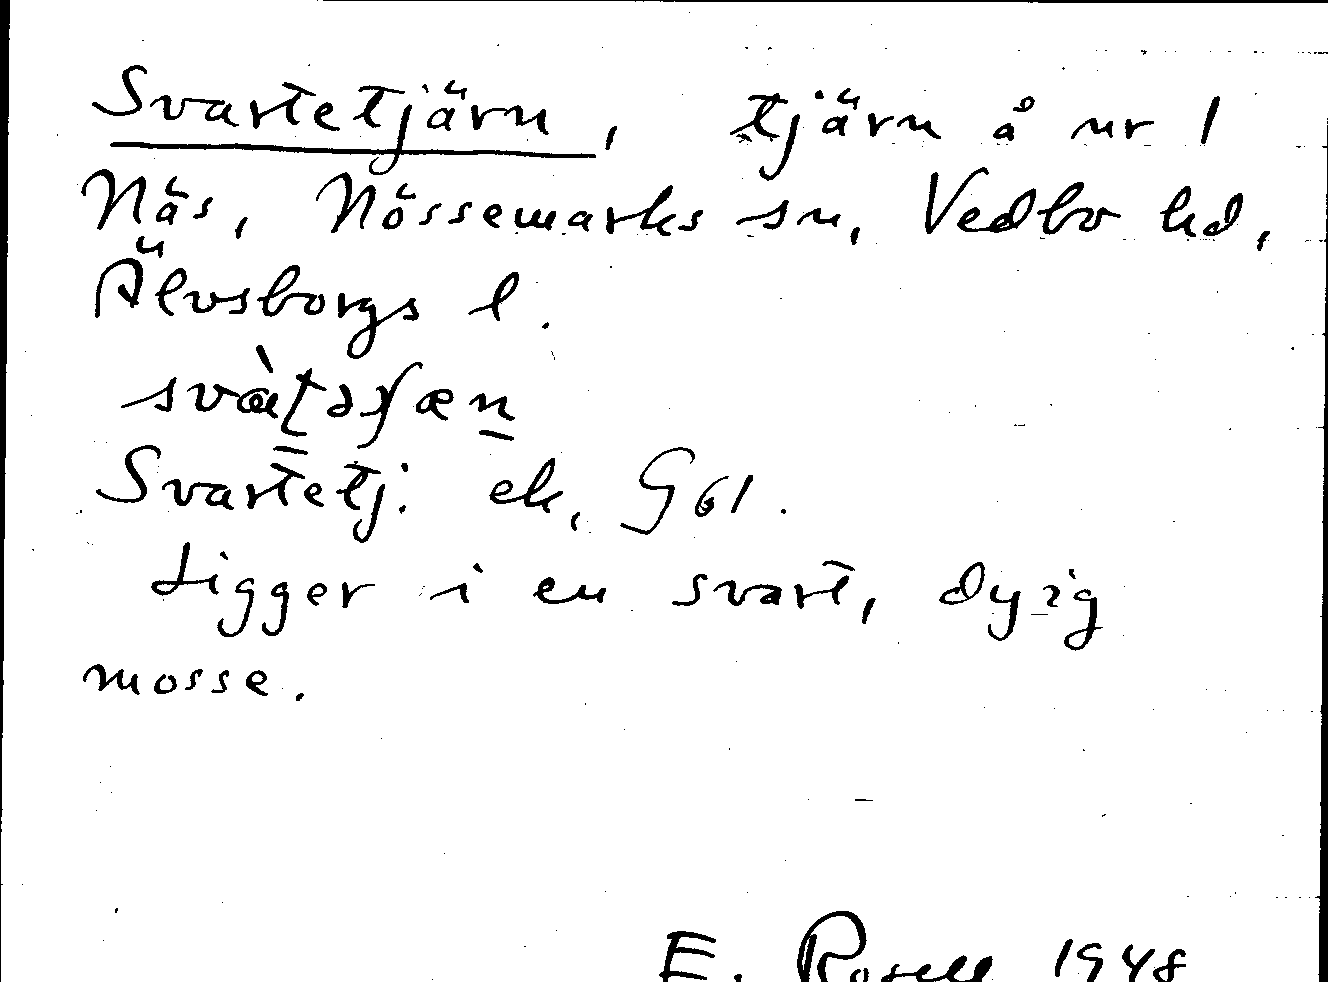 Svartetjärn, tjärn å nr 1
Näs, Nössemarks sn, Vedbo hd,
Älvsborgs l.
Svartetj. ek, G61.
Ligger i en svart, dyig
mosse.
E. Rosell 1948